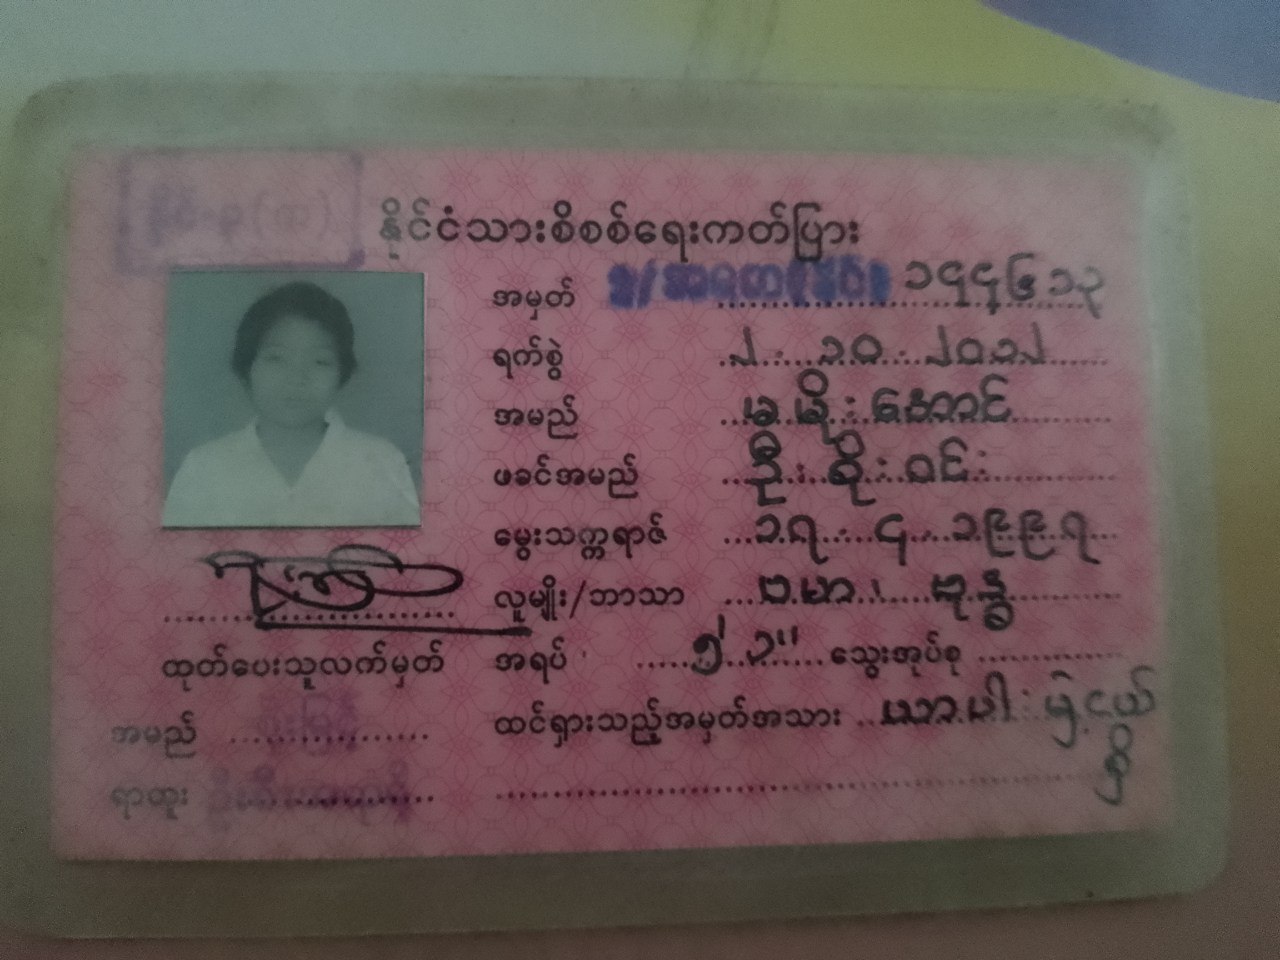 နိုင်ငံသားစိစစ်ရေးကတ်ပြား
အမှတ် ၁၄၄၆၁၃
ရက်စွဲ ၂.၁၀.၂၀၁၂
အမည် မမိုးအောင်
ဖခင်အမည် ဦးစိုးဝင်း
မွေးသက္ကရာဇ် ၁၇.၄.၁၉၉၇
လူမျိုး/ဘာသာ ဗမာ၊ ဗုဒ္ဓ
အရပ် ၅' ၁" သွေးအုပ်စု
ထင်ရှားသည့်အမှတ်အသား ယာပါးမှဲ့ငယ်
ရှိ
ထုတ်ပေးသူလက်မှတ်
အမည်
ရာထူး